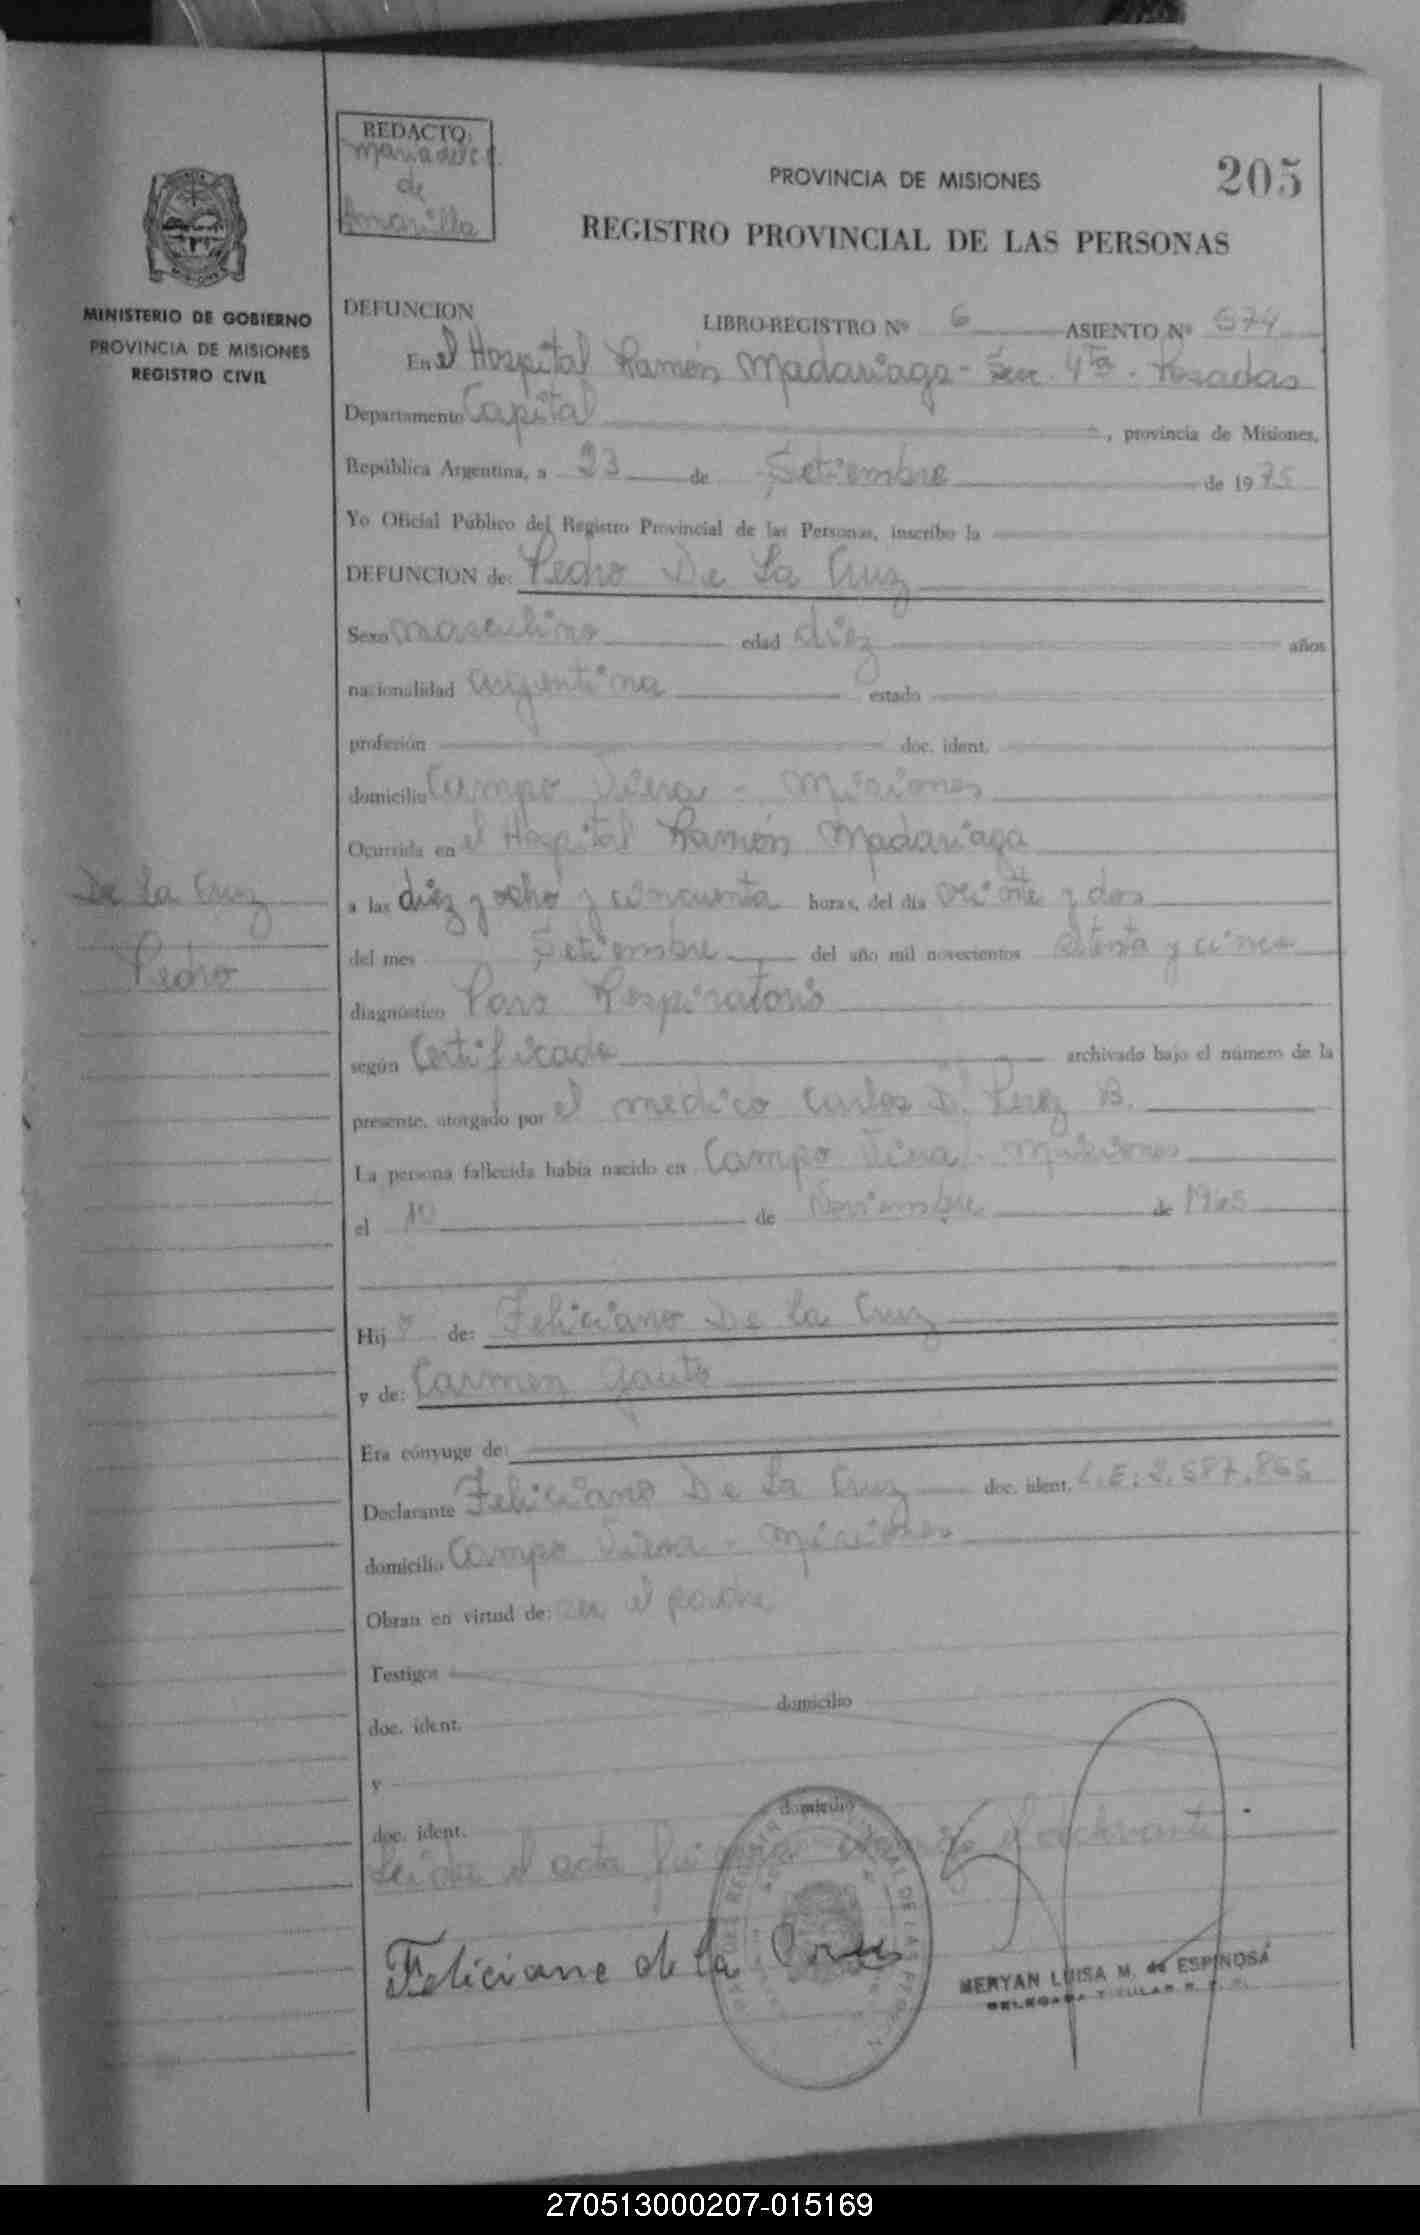 REDACTO:
de
Amarilla
PROVINCIA DE MISIONES
205
REGISTRO PROVINCIAL DE LAS PERSONAS
MINISTERIO DE GOBIERNO
PROVINCIA DE MISIONES
REGISTRO CIVIL
DEFUNCION LIBRO-REGISTRO Nº 6 ASIENTO Nº 574
En el Hospital Ramón Madariaga - Sec. 4ta. Posadas
Departamento Capital, provincia de Misiones,
República Argentina, a 23 de Setiembre de 1975
Yo Oficial Público del Registro Provincial de las Personas, inscribo la
DEFUNCION de: Pedro De La Cruz
Sexo masculino edad diez años
nacionalidad argentina estado
profesión doc. ident.
domicilio Campo Viera - Misiones
Ocurrida en el Hospital Ramón Madariaga
De La Cruz
Pedro
a las diez y ocho y cincuenta horas, del día veinte y dos
del mes Setiembre del año mil novecientos setenta y cinco
diagnóstico Paro Respiratorio
según Certificado archivado bajo el número de la
presente, otorgado por el medico Carlos D. Perez B.
La persona fallecida había nacido en Campo Viera - Misiones
el 10 de Noviembre de 1965
Hij o de: Feliciano De la Cruz
y de: Carmen Gauto
Era cónyuge de:
Declarante Feliciano De La Cruz doc. ident. L.E: 2.587.865
domicilio Campo Viera - Misiones
Obran en virtud de: ser el padre
Testigos
domicilio
doc. ident.
y
domicilio
doc. ident.
Leida el acta el declarante
Feliciano de la Cruz
MERYAN LUISA M. de ESPINOSA
DELEGADA TITULAR
270513000207-015169